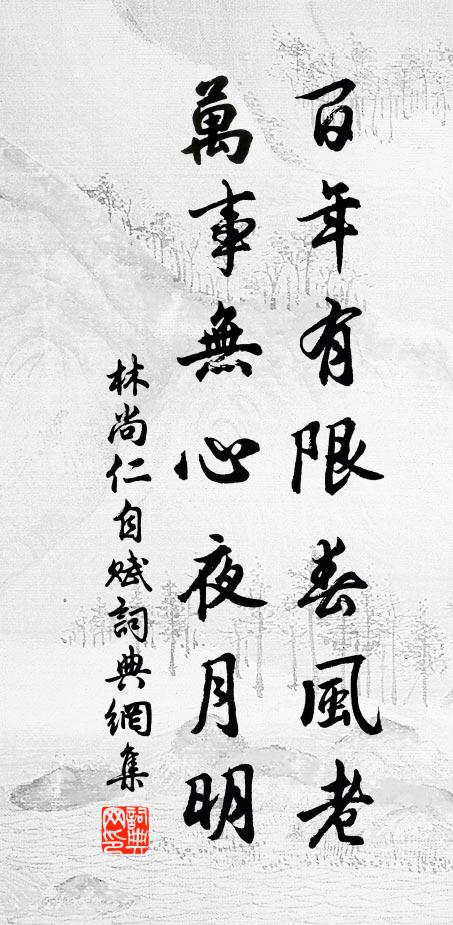 百年有限春風老
萬事無心夜月明
林尚仁自賦詞典網集
詞典網印